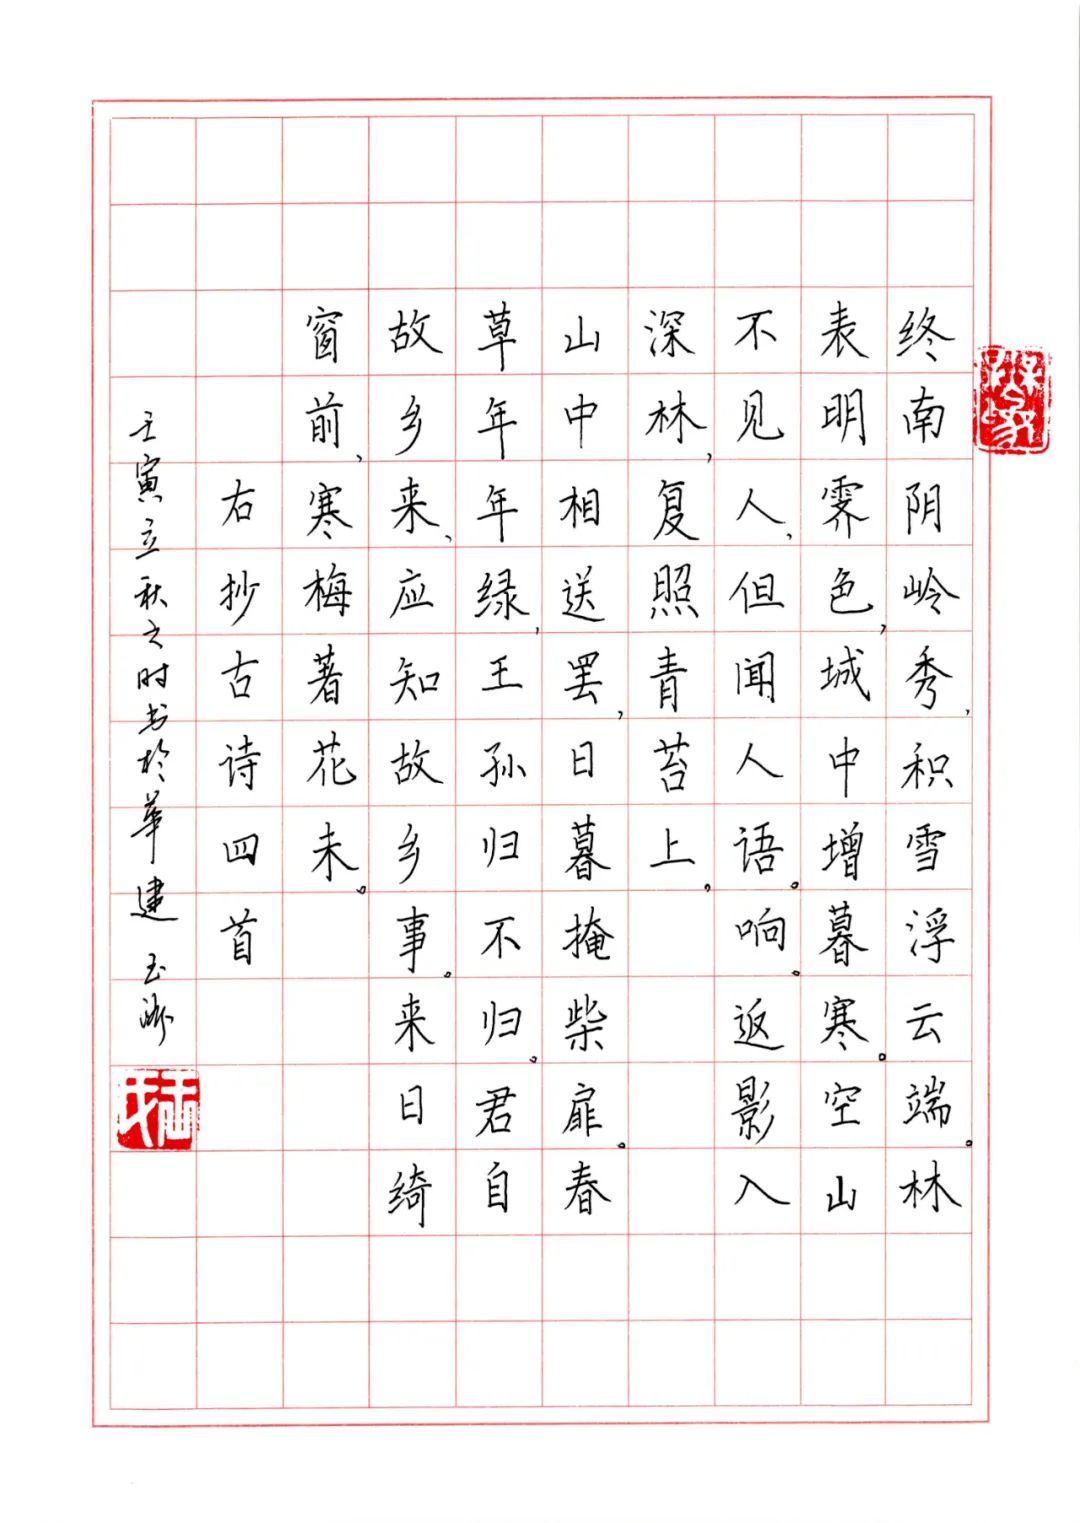 终南阴岭秀，积雪浮云端。林
表明霁色，城中增暮寒。空山
不见人，但闻人语。响。返影入
深林，复照青苔上。
山中相送罢，日暮掩柴扉。春
草年年绿，王孙归不归。君自
故乡来，应知故乡事。来日绮
窗前，寒梅著花未。
右抄古诗四首
壬寅立秋之时书於华建 玉